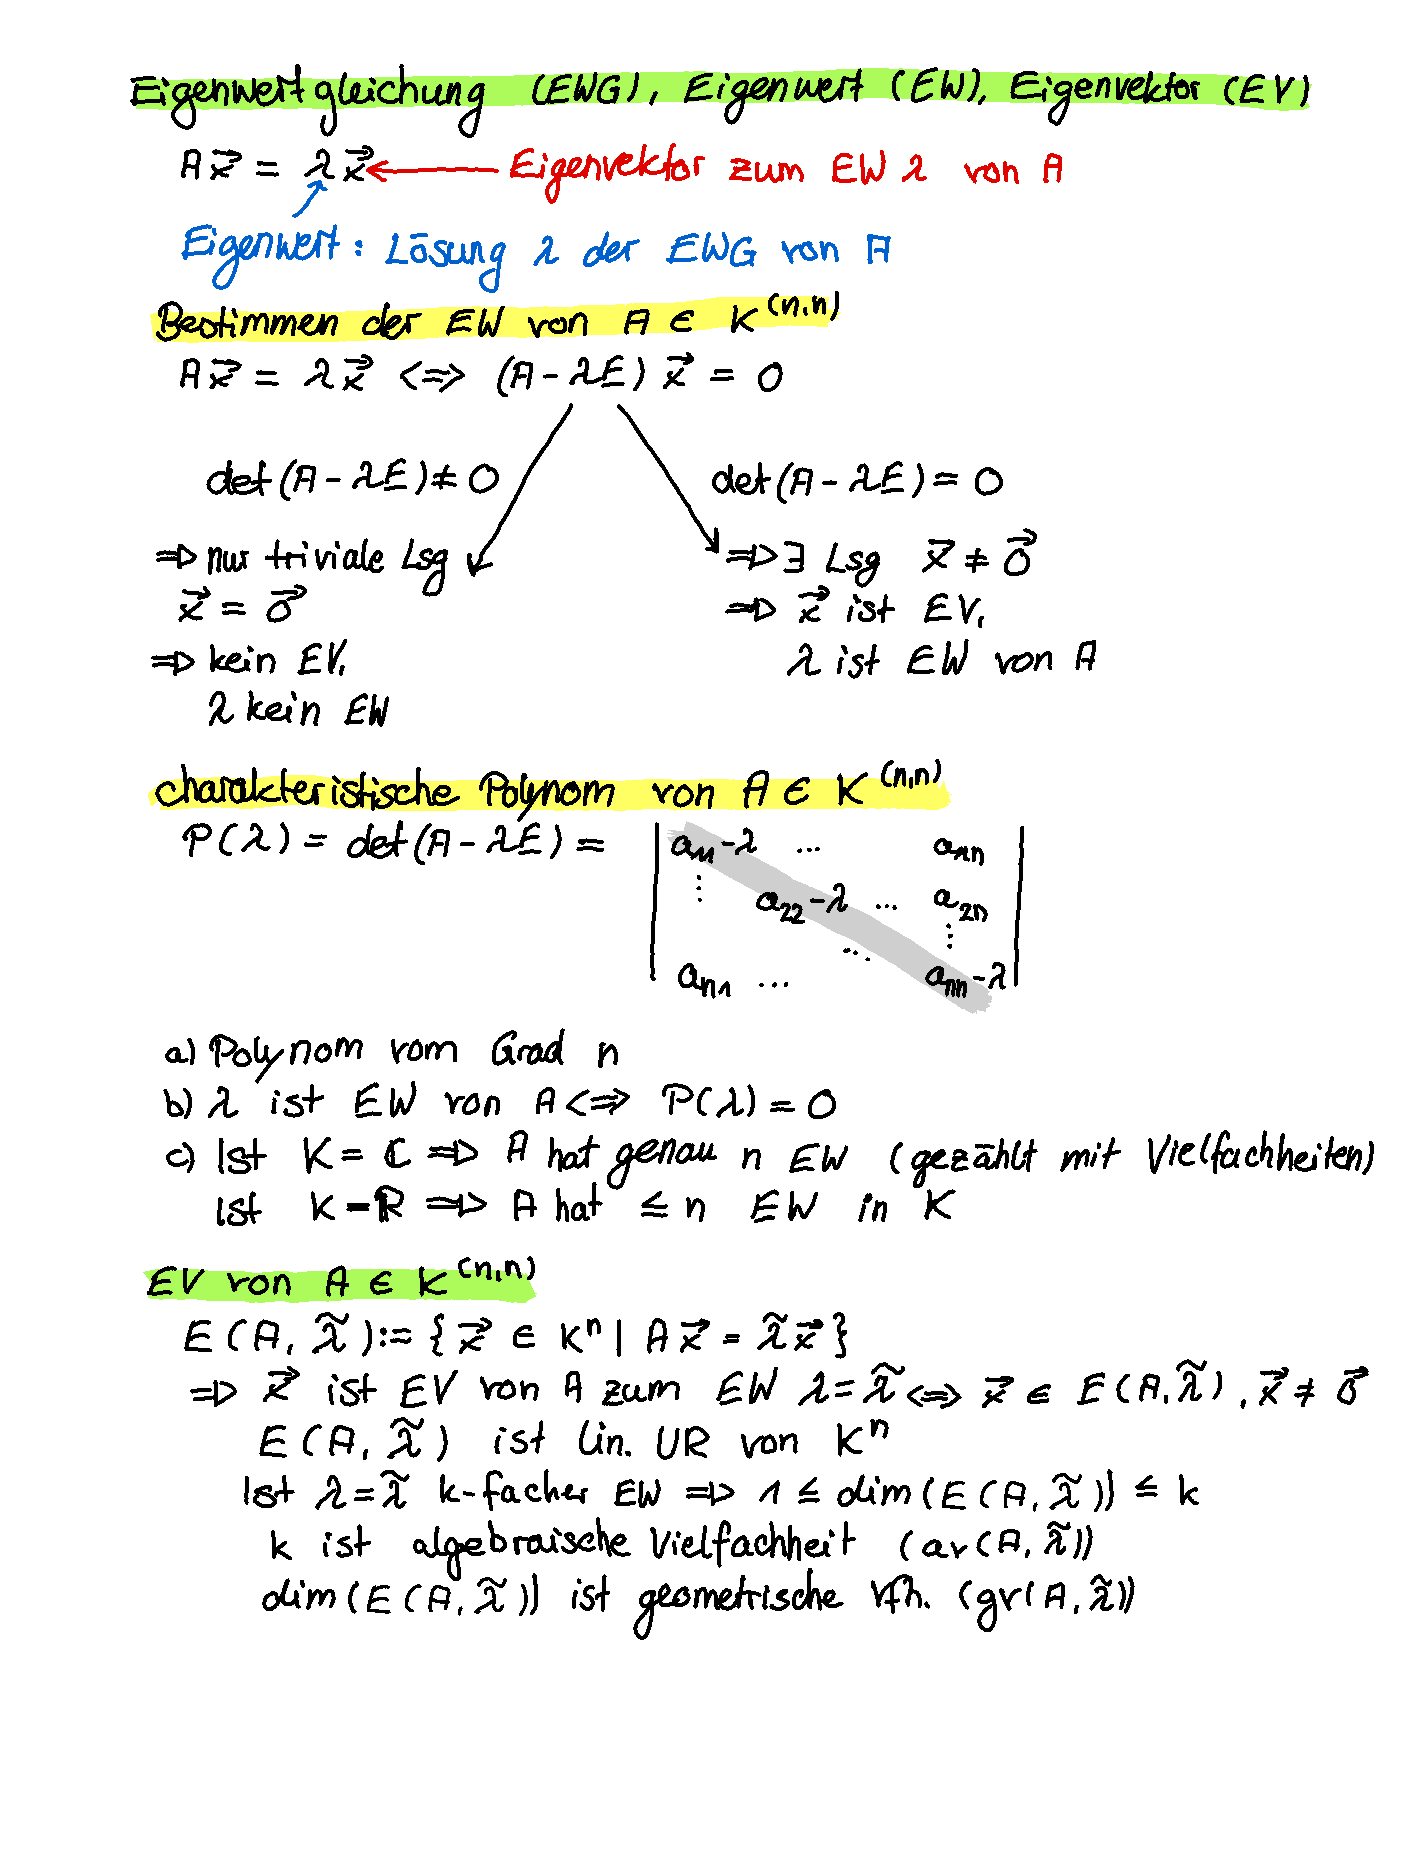 Eigenwertgleichung (EWG), Eigenwert (EW), Eigenvektor (EV)
A x⃗ = λ x⃗ ← Eigenvektor zum EW λ von A
Eigenwert: Lösung λ der EWG von A
Bestimmen der EW von A ∈ K^(n,n)
A x⃗ = λ x⃗ <=> (A - λE) x⃗ = 0
det(A - λE) ≠ 0 det(A - λE) = 0
=> nur triviale Lsg => ∃ Lsg x⃗ ≠ 0⃗
x⃗ = 0⃗ => x⃗ ist EV,
=> kein EV, λ ist EW von A
λ kein EW
charakteristische Polynom von A ∈ K^(n,n)
P(λ) = det(A - λE) = | a₁₁-λ ... a₁ₙ |
⋮ a₂₂-λ ... a₂ₙ
... ⋮
aₙ₁ ... aₙₙ-λ
a) Polynom vom Grad n
b) λ ist EW von A <=> P(λ) = 0
c) Ist K = ℂ => A hat genau n EW (gezählt mit Vielfachheiten)
Ist K = ℝ => A hat ≤ n EW in K
EV von A ∈ K^(n,n)
E(A, λ̃) := { x⃗ ∈ Kⁿ | A x⃗ = λ̃ x⃗ }
=> x⃗ ist EV von A zum EW λ = λ̃ <=> x⃗ ∈ E(A, λ̃), x⃗ ≠ 0⃗
E(A, λ̃) ist lin. UR von Kⁿ
Ist λ = λ̃ k-facher EW => 1 ≤ dim(E(A, λ̃)) ≤ k
k ist algebraische Vielfachheit (av(A, λ̃))
dim(E(A, λ̃)) ist geometrische Vfh. (gv(A, λ̃))